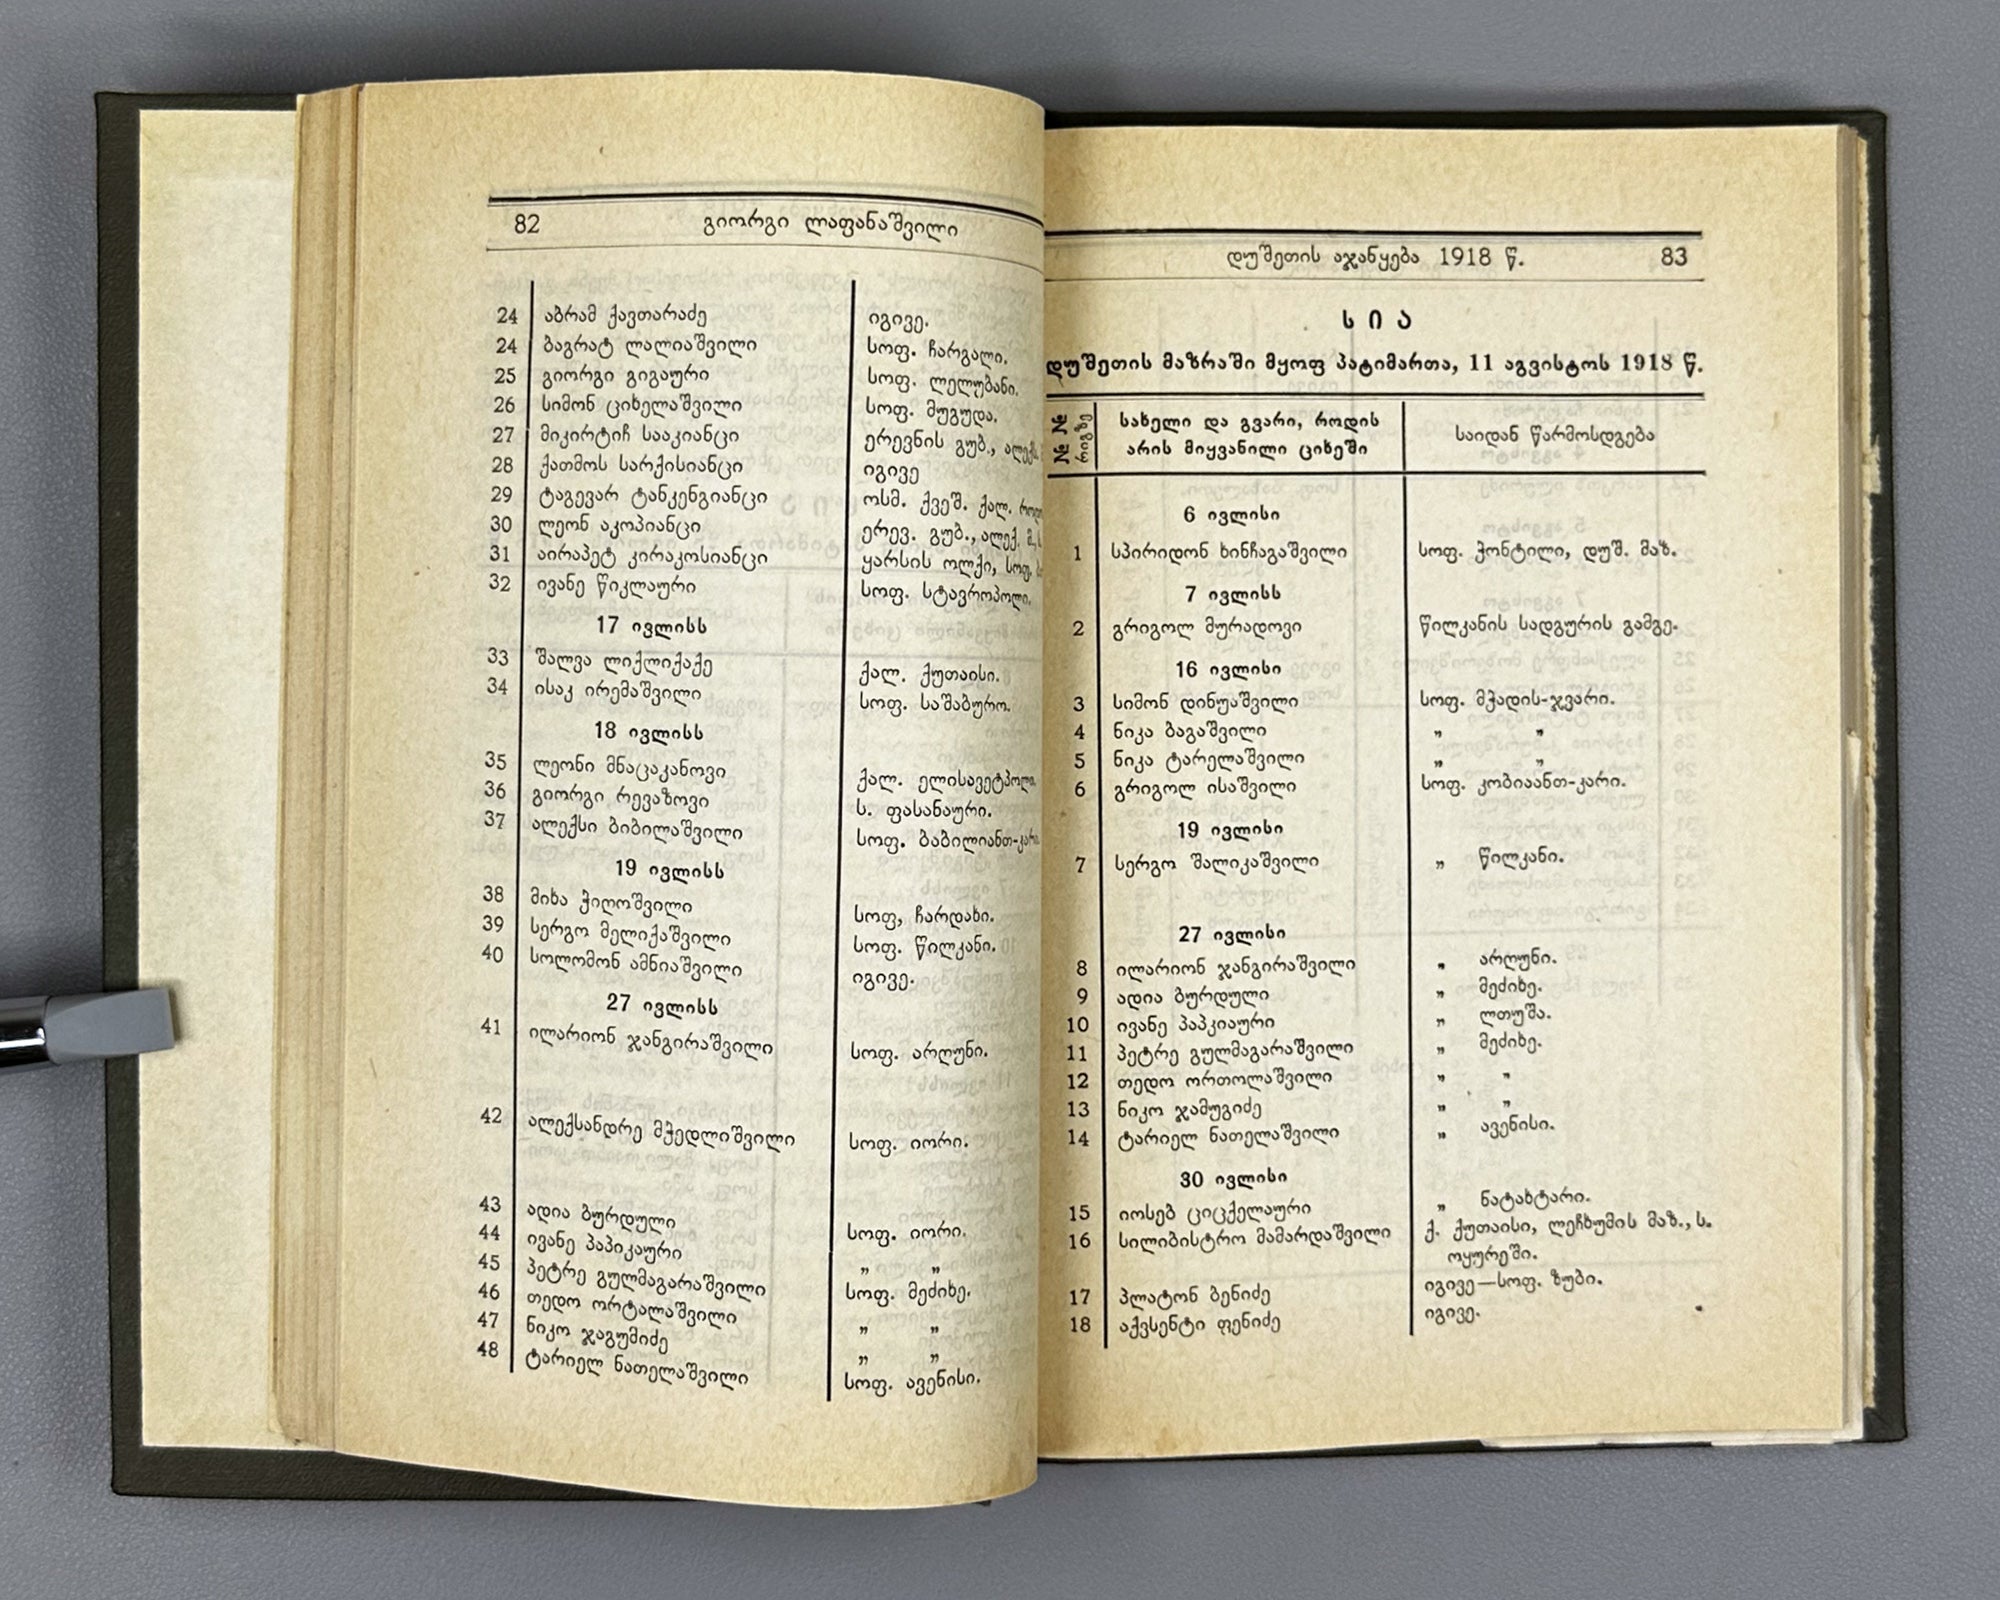 82 გიორგი ლაფანაშვილი
24 აბრამ ქავთარაძე იგივე.
24 ბაგრატ ლალიაშვილი სოფ. ჩარგალი.
25 გიორგი გიგაური სოფ. ლელუბანი.
26 სიმონ ციხელაშვილი სოფ. მუგუდა.
27 მიკირტიჩ სააკიანცი ერევნის გუბ., ალექს.
28 ქათმოს სარქისიანცი იგივე
29 ტაგევარ ტანკენგიანცი ოსმ. ქვეშ. ქალ.
30 ლეონ აკოპიანცი ერევ. გუბ., ალექ. მ.,
31 აირაპეტ კირაკოსიანცი ყარსის ოლქი, სოფ.
32 ივანე წიკლაური სოფ. სტავროპოლი.
17 ივლისს
33 შალვა ლიქლიქაქე ქალ. ქუთაისი.
34 ისაკ ირემაშვილი სოფ. საშაბურო.
18 ივლისს
35 ლეონი მნაცაკანოვი ქალ. ელისავეტპოლი.
36 გიორგი რევაზოვი ს. ფასანაური.
37 ალექსი ბიბილაშვილი სოფ. ბაბილიანთ-კარი
19 ივლისს
38 მიხა ჭიღოშვილი სოფ, ჩარდახი.
39 სერგო მელიქაშვილი სოფ. წილკანი.
40 სოლომონ ამნიაშვილი იგივე.
27 ივლისს
41 ილარიონ ჯანგირაშვილი სოფ. არღუნი.
42 ალექსანდრე მჭედლიშვილი სოფ. იორი.
43 ადია ბურდული სოფ. იორი.
44 ივანე პაპიკაური „ „
45 პეტრე გულმაგარაშვილი სოფ. მეძიხე.
46 თედო ორტალაშვილი „ „
47 ნიკო ჯაგუმიძე „ „
48 ტარიელ ნათელაშვილი სოფ. ავენისი.
დუშეთის აჯანყება 1918 წ. 83
სია
დუშეთის მაზრაში მყოფ პატიმართა, 11 აგვისტოს 1918 წ.
№ № რიგზე
სახელი და გვარი, როდის
არის მიყვანილი ციხეში
საიდან წარმოსდგება
6 ივლისი
1 სპირიდონ ხინჩაგაშვილი სოფ. ჭონტილი, დუშ. მაზ.
7 ივლისს
2 გრიგოლ მურადოვი წილკანის სადგურის გამგე.
16 ივლისი
3 სიმონ დინუაშვილი სოფ. მჭადის-ჯვარი.
4 ნიკა ბაგაშვილი „ „
5 ნიკა ტარელაშვილი „ „
6 გრიგოლ ისაშვილი სოფ. კობიაანთ-კარი.
19 ივლისი
7 სერგო შალიკაშვილი „ წილკანი.
27 ივლისი
8 ილარიონ ჯანგირაშვილი „ არღუნი.
9 ადია ბურდული „ მეძიხე.
10 ივანე პაპკიაური „ ლთუშა.
11 პეტრე გულმაგარაშვილი „ მეძიხე.
12 თედო ორთოლაშვილი „ „
13 ნიკო ჯამუგიძე „ „
14 ტარიელ ნათელაშვილი „ ავენისი.
30 ივლისი
15 იოსებ ციცქელაური „ ნატახტარი.
16 სილიბისტრო მამარდაშვილი ქ. ქუთაისი, ლეჩხუმის მაზ., ს.
ოყურეში.
17 პლატონ ბენიძე იგივე—სოფ. ზუბი.
18 აქვსენტი ფენიძე იგივე.